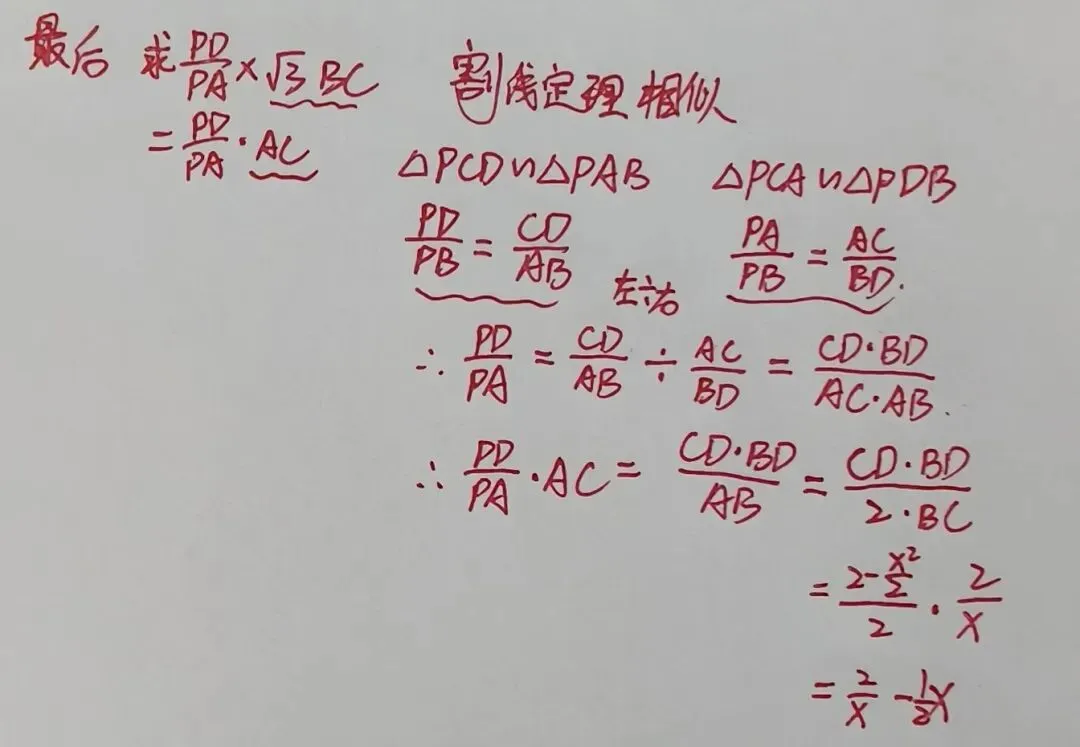 最后 求 PD/PA × √3 BC 割线定理 相似
= PD/PA · AC
△PCD∽△PAB △PCA∽△PDB
PD/PB = CD/AB 左÷右 PA/PB = AC/BD.
∴ PD/PA = CD/AB ÷ AC/BD = CD·BD/AC·AB.
∴ PD/PA · AC = CD·BD/AB = CD·BD/2·BC
= (2-x²/2)/2 · 2/x
= 2/x - 1/2 x